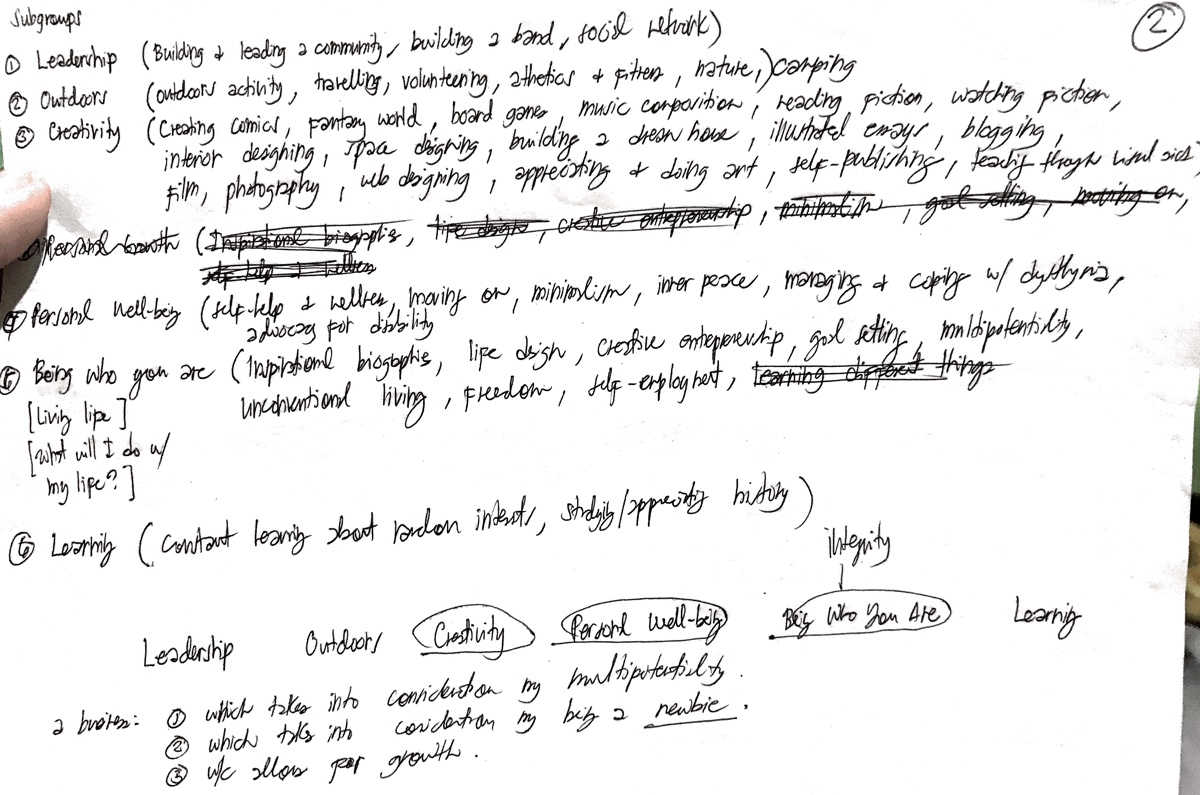 Subgroups
2
① Leadership (Building & leading a community, building a band, social network)
② Outdoors (outdoors activity, travelling, volunteering, athletics & fitness, nature,) camping
③ Creativity (Creating comics, fantasy world, board games, music composition, reading fiction, watching fiction,
interior designing, space designing, building a dream house, illustrated essays, blogging,
film, photography, web designing, appreciating & doing art, self-publishing, teaching through visual aids,
Personal Growth (Inspirational biographies, life design, creative entrepreneurship, minimalism, goal setting, moving on,
self-help & wellness
④ Personal Well-being (self-help & wellness, moving on, minimalism, inner peace, managing & coping w/ dysthymia,
advocacy for disability
⑤ Being who you are (Inspirational biographies, life design, creative entrepreneurship, goal setting, multipotentiality,
[Living life] unconventional living, freedom, self-employment, learning different things
[What will I do w/
my life?]
⑥ Learning (constant learning about random interests, studying/appreciating history)
integrity
Leadership Outdoors Creativity Personal Well-being Being Who You Are Learning
a business: ① which takes into consideration my multipotentiality.
② which takes into consideration my being a newbie.
③ w/c allows for growth.